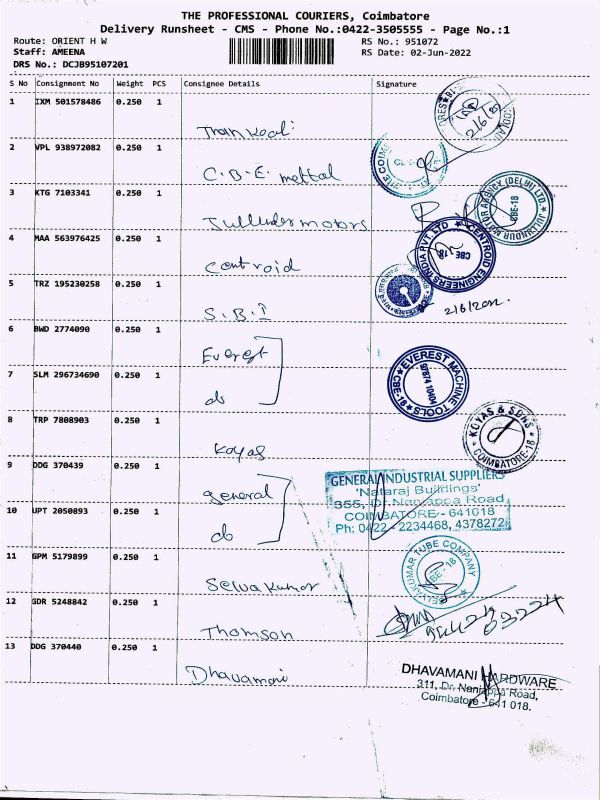 THE PROFESSIONAL COURIERS, Coimbatore
Delivery Runsheet - CMS - Phone No.:0422-3505555 - Page No.:1
Route: ORIENT H W
RS No.: 951072
Staff: AMEENA
RS Date: 02-Jun-2022
DRS No.: DCJB95107201
S No Consignment No Weight PCS Consignee Details Signature
1 IXM 501578486 0.250 1
2/6/22
2 VPL 938972082 0.250 1
C.B.E. mettal
3 KTG 7103341 0.250 1
JULLUNDUR MOTOR AGENCY (DELHI) LTD. CBE-18
Jullundur motors
4 MAA 563976425 0.250 1
CENTROID ENGINEERS INDIA PVT. LTD CBE-18
Centroid
5 TRZ 195230258 0.250 1
S.B.I 2/6/2022
6 BWD 2774090 0.250 1
Everest
EVEREST MACHINE TOOLS CBE-18 97874 10404
7 SLM 296734690 0.250 1
do
8 TRP 7808903 0.250 1
KOYAS & SONS COIMBATORE-18
Koyas
9 DDG 370439 0.250 1
GENERAL INDUSTRIAL SUPPLIERS
'Nataraj Buildings'
general
355, Dr. Nanjappa Road
10 UPT 2050893 0.250 1
COIMBATORE - 641018
Ph: 0422 - 2234468, 4378272
do
11 GPM 5179899 0.250 1
SELVAKUMAR TUBE COMPANY CBE-18
Selvakumar
12 GDR 5248842 0.250 1
Thomson
13 DDG 370440 0.250 1
Dhavamani
DHAVAMANI HARDWARE
311, Dr. Nanjappa Road,
Coimbatore - 641 018.